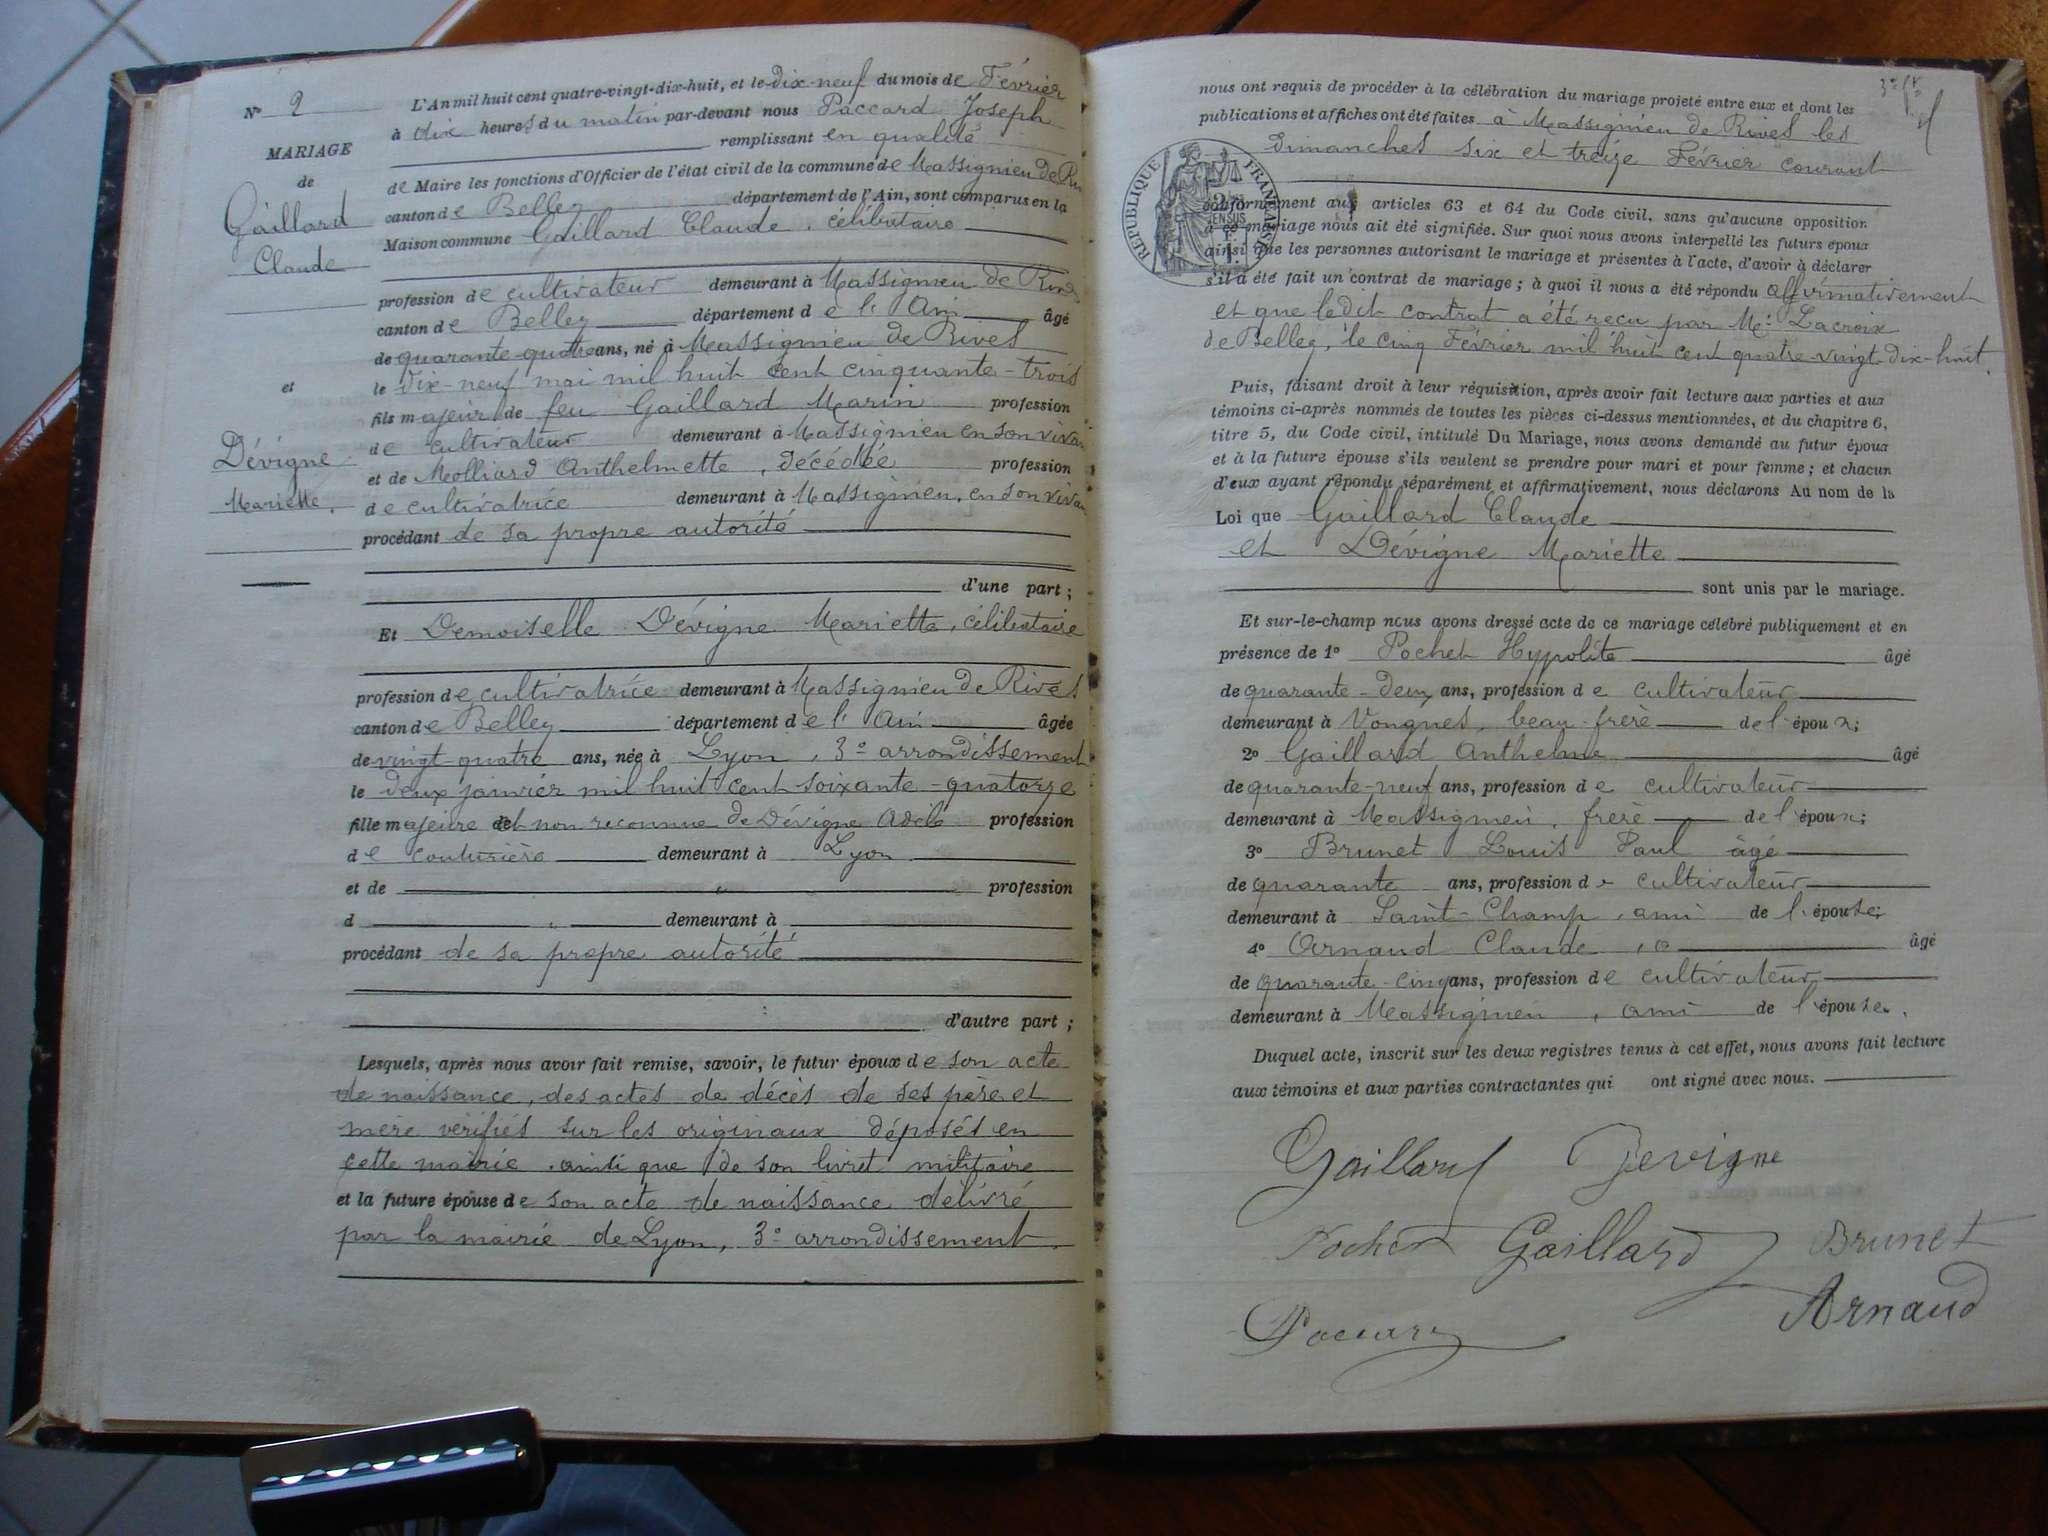 N° 2
MARIAGE
de
Gaillard
Claude
et
Dévigne
Mariette.
L'An mil huit cent quatre-vingt-dix-huit, et le dix-neuf du mois de Février
à dix heures du matin par-devant nous Paccard Joseph
remplissant en qualité
de Maire les fonctions d'Officier de l'état civil de la commune de Massignieu de
canton de Belley département de l'Ain, sont comparus en la
Maison commune Gaillard Claude, célibataire
profession de cultivateur demeurant à Massignieu de Rives
canton de Belley département de l'Ain âgé
de quarante-quatre ans, né à Massignieu de Rives
le dix-neuf mai mil huit cent cinquante-trois
fils majeur de feu Gaillard Marin profession
de cultivateur demeurant à Massignieu en son vivan
et de Molliard Anthelmette, décédée profession
de cultivatrice demeurant à Massignieu, en son viva
procédant de sa propre autorité
d'une part ;
Et Demoiselle Dévigne Mariette, célibataire
profession de cultivatrice demeurant à Massignieu de Rives
canton de Belley département de l'Ain âgée
de vingt quatre ans, née à Lyon, 3e arrondissement
le deux janvier mil huit cent soixante-quatorze
fille majeure et non reconnue de Dévigne Adèle profession
de couturière demeurant à Lyon
et de " profession
d " demeurant à
procédant de sa propre autorité
d'autre part ;
Lesquels, après nous avoir fait remise, savoir, le futur époux de son acte
de naissance, des actes de décès de ses père et
mère vérifiés sur les originaux déposés en
cette mairie, ainsi que de son livret militaire
et la future épouse de son acte de naissance délivré
par la mairie de Lyon, 3e arrondissement.
nous ont requis de procéder à la célébration du mariage projeté entre eux et dont les
publications et affiches ont été faites à Massignieu de Rives les
dimanches six et treize Février courant
RÉPUBLIQUE FRANÇAISE
conformément aux articles 63 et 64 du Code civil, sans qu'aucune opposition
à ce mariage nous ait été signifiée. Sur quoi nous avons interpellé les futurs époux
ainsi que les personnes autorisant le mariage et présentes à l'acte, d'avoir à déclarer
s'il a été fait un contrat de mariage ; à quoi il nous a été répondu affirmativement
et que ledit contrat a été reçu par Me Lacroix
de Belley, le cinq Février mil huit cent quatre-vingt-dix-huit.
Puis, faisant droit à leur réquisition, après avoir fait lecture aux parties et aux
témoins ci-après nommés de toutes les pièces ci-dessus mentionnées, et du chapitre 6,
titre 5, du Code civil, intitulé Du Mariage, nous avons demandé au futur époux
et à la future épouse s'ils veulent se prendre pour mari et pour femme ; et chacun
d'eux ayant répondu séparément et affirmativement, nous déclarons Au nom de la
Loi que Gaillard Claude
et Dévigne Mariette
sont unis par le mariage.
Et sur-le-champ nous avons dressé acte de ce mariage célébré publiquement et en
présence de 1° Pochet Hypolite âgé
de quarante-deux ans, profession de cultivateur
demeurant à Vongnes, beau-frère de l'époux;
2° Gaillard Anthelme âgé
de quarante-neuf ans, profession de cultivateur
demeurant à Massignieu, frère de l'époux;
3° Brunet Louis Paul âgé
de quarante ans, profession de cultivateur
demeurant à Saint-Champ, ami de l'épouse;
4° Arnaud Claude, âgé
de quarante-cinq ans, profession de cultivateur
demeurant à Massignieu, ami de l'épouse.
Duquel acte, inscrit sur les deux registres tenus à cet effet, nous avons fait lecture
aux témoins et aux parties contractantes qui ont signé avec nous.
Gaillard Devigne
Pochet Gaillard Brunet
Paccard Arnaud